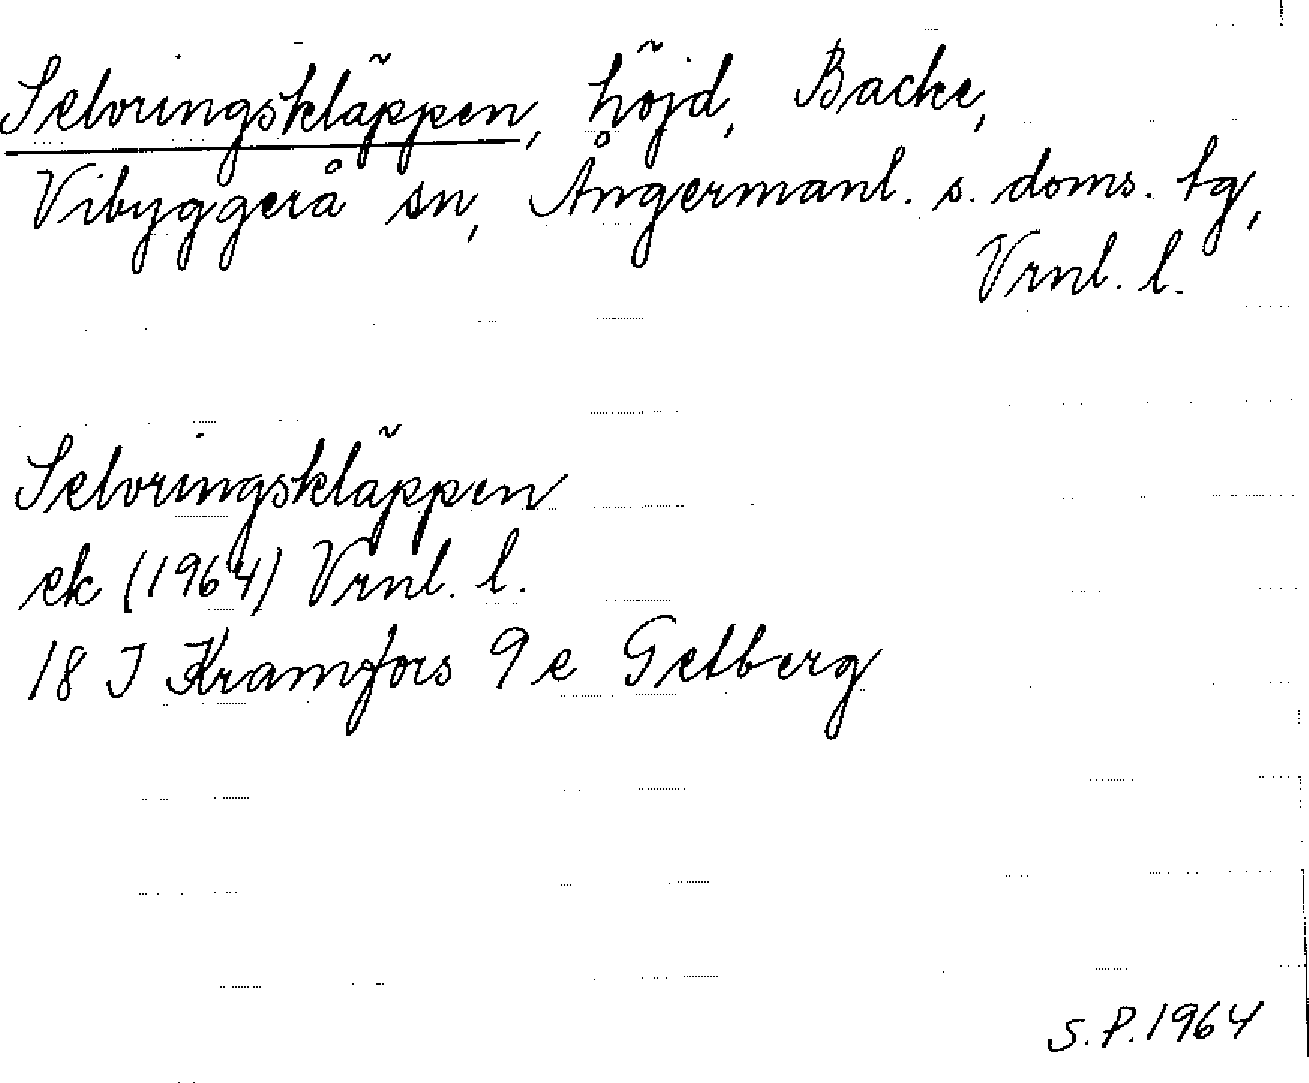 Selvringskläppen, höjd, Backe,
Vibyggerå sn, Ångermanl. s. doms. tg,
Vrnl. l.
Selvringskläppen
ek (1964) Vrnl. l.
18 I Kramfors 9 e Getberg
S.P. 1964